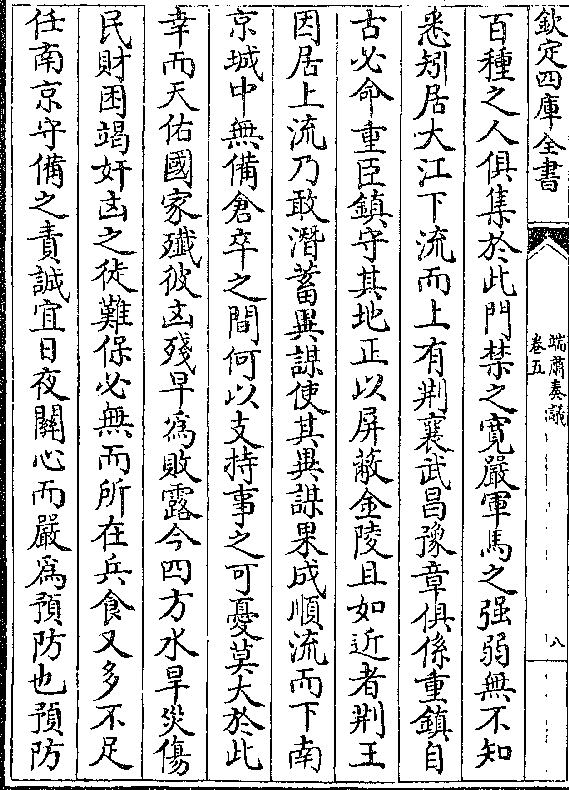 欽定四庫全書
端肅奏議
卷五
八
百種之人俱集於此門禁之寛嚴軍馬之强弱無不知
悉矧居大江下流而上有荆襄武昌豫章俱係重鎮自
古必命重臣鎮守其地正以屏蔽金陵且如近者荆王
因居上流乃敢潛蓄異謀使其異謀果成順流而下南
京城中無備倉卒之間何以支持事之可憂莫大於此
幸而天佑國家殲彼凶殘早為敗露今四方水旱災傷
民財困竭奸凶之徒難保必無而所在兵食又多不足
任南京守備之責誠宜日夜關心而嚴為預防也預防